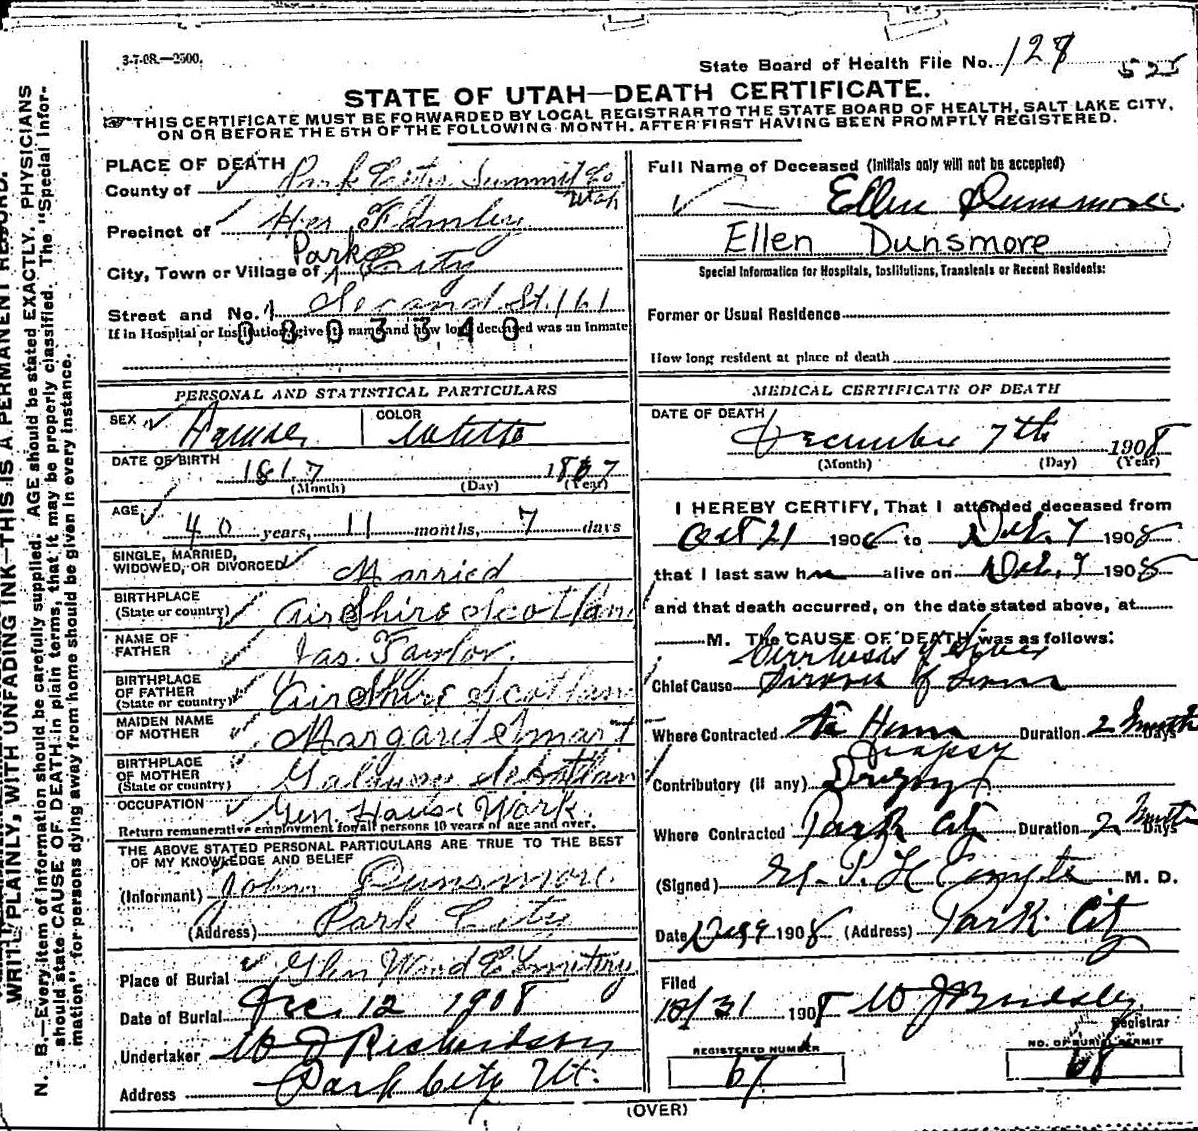 3-7-08.—2500.
State Board of Health File No. 128 525
STATE OF UTAH—DEATH CERTIFICATE.
THIS CERTIFICATE MUST BE FORWARDED BY LOCAL REGISTRAR TO THE STATE BOARD OF HEALTH, SALT LAKE CITY,
ON OR BEFORE THE 5TH OF THE FOLLOWING MONTH, AFTER FIRST HAVING BEEN PROMPTLY REGISTERED.
WRITE PLAINLY, WITH UNFADING INK—THIS IS A PERMANENT RECORD.
N. B.—Every item of information should be carefully supplied. AGE should be stated EXACTLY. PHYSICIANS
should state CAUSE OF DEATH in plain terms, that it may be properly classified. The "Special Infor-
mation" for persons dying away from home should be given in every instance.
PLACE OF DEATH
County of Park City Summit Co
Utah
Precinct of Her Famley
City, Town or Village of Park City
Street and No. Second St. 161
If in Hospital or Institution, give its name and how long deceased was an Inmate
0803340
PERSONAL AND STATISTICAL PARTICULARS
SEX
COLOR
DATE OF BIRTH 181.7 1867
(Month) (Day) (Year)
AGE 40 years, 11 months, 7 days
SINGLE, MARRIED,
WIDOWED, OR DIVORCED Married
BIRTHPLACE
(State or country) AirShire Scotland
NAME OF
FATHER Jas. Taylor.
BIRTHPLACE
OF FATHER
(State or country) AirShire Scotland
MAIDEN NAME
OF MOTHER Margaret Smart
BIRTHPLACE
OF MOTHER
(State or country) Scotland
OCCUPATION Gen. House Work
Return remunerative employment for all persons 10 years of age and over.
THE ABOVE STATED PERSONAL PARTICULARS ARE TRUE TO THE BEST
OF MY KNOWLEDGE AND BELIEF
(Informant) John Dunsmore
(Address) Park City
Place of Burial Glen Wood Cemitery
Date of Burial Dec. 12 1908
Undertaker W J Richardson
Address Park City Ut.
Full Name of Deceased (Initials only will not be accepted)
Ellen Dunsmore
Ellen Dunsmore
Special Information for Hospitals, Institutions, Transients or Recent Residents:
Former or Usual Residence
How long resident at place of death
MEDICAL CERTIFICATE OF DEATH
DATE OF DEATH
December 7th 1908
(Month) (Day) (Year)
I HEREBY CERTIFY, That I attended deceased from
Oct 21 190 to Dec. 7 1908
that I last saw her alive on Dec. 7 1908
and that death occurred, on the date stated above, at
M. The CAUSE OF DEATH was as follows:
Cirrhosis of Liver
Chief Cause
Where Contracted At Home Duration 2 Months Days
Dropsy
Contributory (if any) Dropsy
Where Contracted Park City Duration 2 Months Days
(Signed) M. D.
Date Dec 9 1908 (Address) Park City
Filed
12/31 1908
Registrar
REGISTERED NUMBER
67
NO. OF BURIAL PERMIT
68
(OVER)